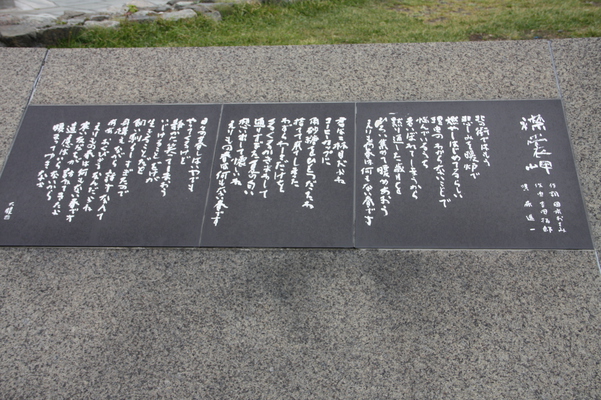 襟裳岬
作詞 岡本おさみ
作曲 吉田拓郎
唄 森進一
北の街ではもう
悲しみを暖炉で
燃やしはじめてるらしい
理由のわからないことで
悩んでいるうち
老いぼれてしまうから
黙り通した歳月を
ひろい集めて暖めあおう
えりもの春は何もない春です
君は二杯目だよね
コーヒーカップに
角砂糖をひとつだったね
捨てて来てしまった
わずらわしさだけを
くるくるかきまわして
通りすぎた夏の匂い
想い出して懐しいね
えりもの春は何もない春です
日々の暮しはいやでも
やってくるけど
静かに笑ってしまおう
いじけることだけが
生きることだと
飼い馴らしすぎたので
身構えながら話すなんて
ああおくびょうなんだよね
えりもの春は何もない春です
寒い友だちが訪ねて来たよ
遠慮はいらないから
暖まってゆきなよ